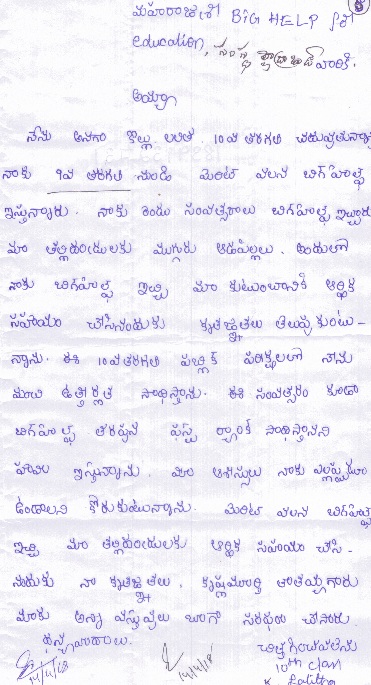 మహారాజశ్రీ BIG HELP for
education, సంస్థ హైద్రాబాద్ వారికి.
అయ్యా
నేను అనగా కొల్లు లలిత 10వ తరగతి చదువుతున్నా
నాకు 9వ తరగతి నుండి మెరిట్ వలన బిగ్‌హెల్ప్
ఇస్తున్నారు. నాకు రెండు సంవత్సరాలు బిగ్‌హెల్ప్ ఇచ్చారు
మా తల్లిదండ్రులకు ముగ్గురు ఆడపిల్లలు. అందులో
నాకు బిగ్‌హెల్ప్ ఇచ్చి మా కుటుంబానికి ఆర్థిక
సహాయం చేసినందుకు కృతజ్ఞతలు తెలుపుకుంటు-
న్నాను. ఈ 10వ తరగతి పబ్లిక్ పరీక్షలలో నాను
మంచి ఉత్తీర్ణత సాధిస్తాను. ఈ సంవత్సరం కూడా
బిగ్‌హెల్ప్ తరపున ఫస్ట్ ర్యాంక్ సాధిస్తానని
హామి ఇస్తున్నాను. మీ ఆశీస్సులు నాకు ఎల్లప్పుడూ
ఉండాలని కోరుకుంటున్నాను. మెరిట్ వలన బిగ్‌హెల్ప్
ఇచ్చి మా తల్లిదండ్రులకు ఆర్థిక సహాయం చేసి-
నందుకు నా కృతజ్ఞతలు. కృష్ణమూర్తి తాతయ్యగారు
మాకు అన్ని వస్తువులు బాగా సరఫరా చేసారు.
ధన్యవాదాలు.
చిత్తగించవలెను
10th class
K. Lalitha
14/4/18
14/4/18